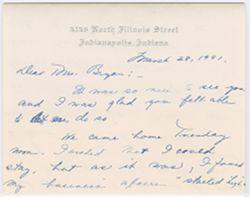 4146 North Illinois Street
Indianapolis, Indiana
March 28, 1941.
Dear Mrs. Bryan:-
It was so nice to see you
and I was glad you felt able
to let me do so.
We came home Tuesday
noon. I wished that I could
stay, but as it was, I found
my business affairs "started high